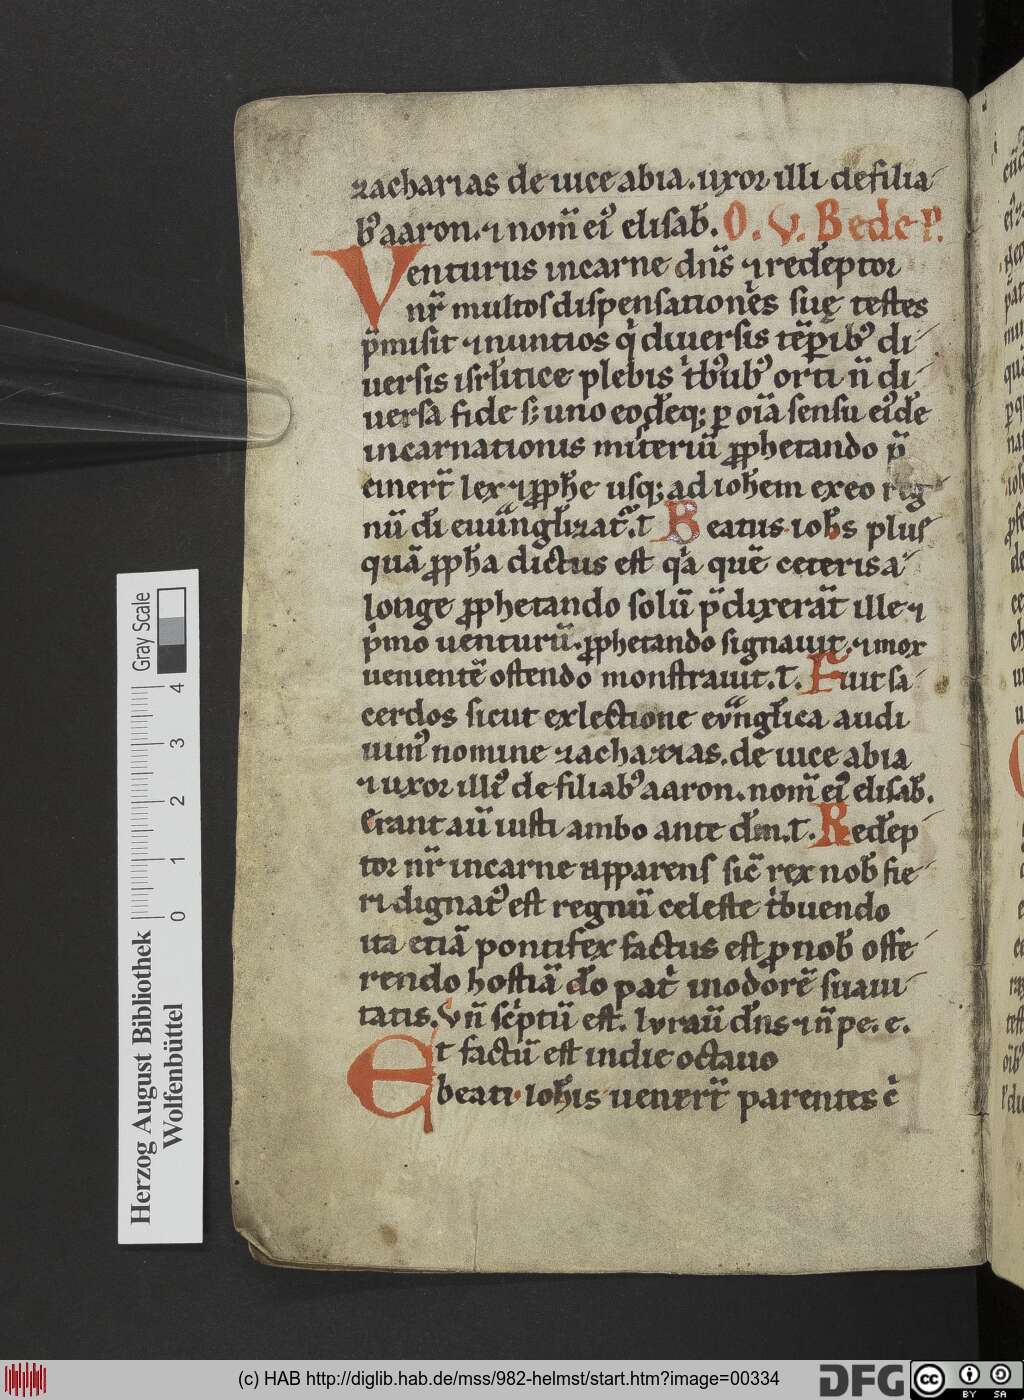 zacharias de uice abia. uxor illi de filia
b᷒ aaron. ⁊ nom̄ ei᷒ elisab̄. O. V. Bede p̄.
Venturus in carne dn̄s ⁊ redēptor
nr̄ multos dispensationẹs suę testes
p̄misit ⁊ nuntios q̇ diuersis tēꝑib᷒ di
uersis isrl̄itice plebis ṫb᷒ub᷒ orti n̄ di
uersa fide s; uno eodēq; ꝑ oīa sensu ei᷒dē
incarnationis misteriū ꝓphetando p̄
einer̄t lex ⁊ ꝓph̄e usq; ad ioh̄em exeo reg
nū dī euuangl̄izat᷒. t Beatus ioh̄s plus
quā ꝓph̄a dictus est q̇a quē ceteris a
longe ꝓphetando solū p̄dixerāt ille ⁊
ṗmo uenturū. ꝓphetando signauit. ⁊ mox
uenientē ostendo monstrauit. t. Fuit sa
cerdos sicut ex lectione evangl̄ica audi
uim᷒ nomine zacharias. de uice abia
⁊ uxor illi᷒ de filiab᷒ aaron. nom̄ ei᷒ elisab̄.
erant aū iusti ambo ante dm̄. t. Redēp
tor nr̄ in carne apparens sic̄ rex nob̄ fie
ri dignat᷒ est regnū celeste ṫbuendo
ita etiā pontifex factus est ꝓ nob̄ offe
rendo hostiā dō paṫ in odorē suaui
tatis. Vn̄ sċptū est. Iurau̅ dn̄s ⁊ n̄ pe. e.
Et factū est in die octauo
beati ioh̄is uener̄t parentes c̄
Herzog August Bibliothek
Wolfenbüttel
0 1 2 3 4
Gray Scale
(c) HAB http://diglib.hab.de/mss/982-helmst/start.htm?image=00334
DFG
cc BY SA